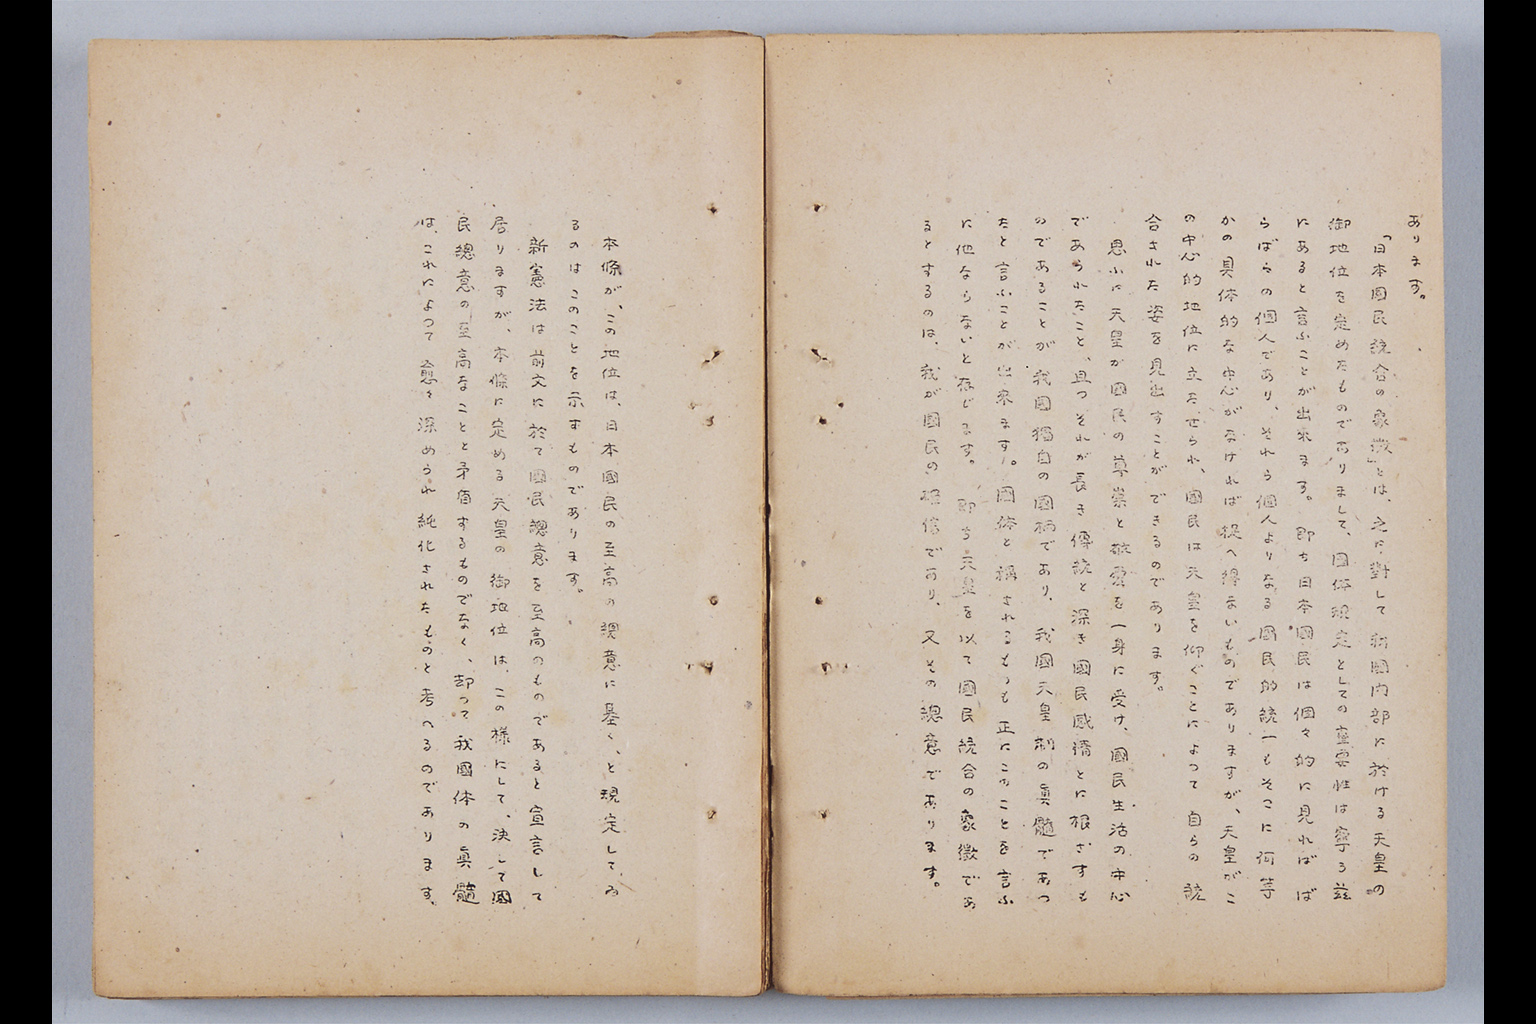 あります。
「日本國民統合の象徴」とは、之に對して我國内部に於ける天皇の
御地位を定めたものでありまして、国体規定としての重要性は寧ろ茲
にあると言ふことが出來ます。即ち日本國民は個々的に見ればば
らばらの個人であり、それら個人よりなる國民的統一もそこに何等
かの具体的な中心がなければ捉へ得ないものでありますが、天皇がこ
の中心的地位に立たせられ、國民は天皇を仰ぐことによつて自らの統
合された姿を見出すことができるのであります。
思ふに天皇が國民の尊崇と敬愛を一身に受け、國民生活の中心
であられたこと、且つそれが長き傳統と深き國民感情とに根ざすも
のであることが我國獨自の國柄であり、我國天皇制の眞髓であつ
たと言ふことが出來ます。國体と稱されるもつも正にこのことを言ふ
に他ならないと存じます。即ち天皇を以て國民統合の象徴であ
るとするのは、我が國民の確信であり、又その總意であります。
本條が、この地位は、日本國民の至高の總意に基く、と規定してゐ
るのはこのことを示すものであります。
新憲法は前文に於て國民總意を至高のものであると宣言して
居りますが、本條に定める天皇の御地位は、この樣にして、決して國
民總意の至高なことと矛盾するものでなく、却つて我國体の眞髓
は、これによつて愈々深められ純化されたものと考へるのであります。